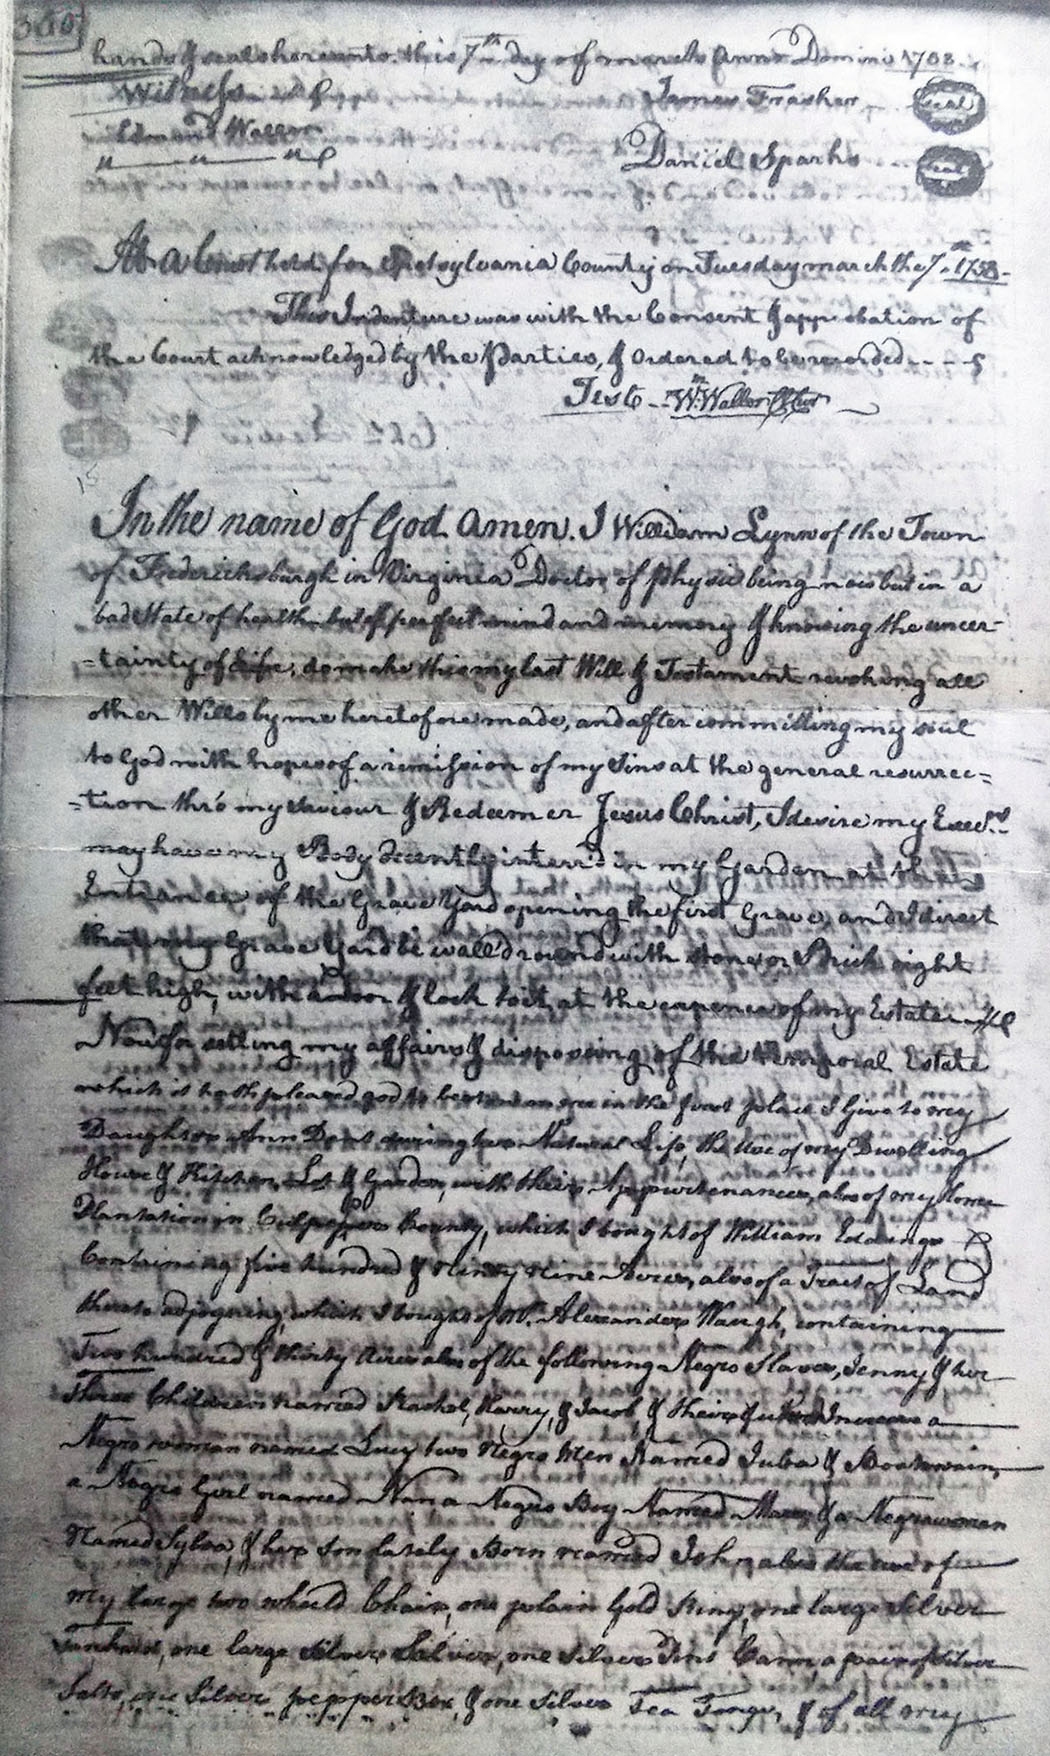 360
hands & seals hereunto this 7th day of march Anno Domini 1758.
Witness James Frasher seal
Edmund Waller Daniel Sparks seal
At a Court held for Spotsylvania County on Tuesday march the 7th 1758.
This Indenture was with the Consent & approbation of
the Court acknowledged by the Parties, & Ordered to be recorded
Test Wm Waller
15
In the name of God amen. I William Lynn of the Town
of Fredericksburgh in Virginia Doctor of physic being now but in a
bad State of health but of perfect mind and memory & knowing the uncer-
=tainty of life, do make this my last Will & Testament revoking all
other Wills by me heretofore made, and after committing my soul
to God with hopes of a remission of my Sins at the general resurrec=
=tion thro' my Saviour & Redeemer Jesus Christ, I desire my Execrs
may have my Body decently interr'd in my Garden at the
Entrance of the Grave Yard opening the first Grave, and I direct
that my Grave Yard be wall'd round with stone or Brick eight
feet high, with a door & lock to it, at the expence of my Estate
Now for setling my affairs & disposing of the temporal Estate
which it hath pleased god to bestow on me in the first place I Give to my
Daughter Ann Dent during her Natural Life, the Use of my Dwelling
House & Kitchen, Lot & Garden, with their Appurtenances, also of my Home
Plantation in Culpeper County, which I bought of William Eddings
Containing five hundred & Ninety Nine Acres, also of a Tract of Land
thereto adjoyning, which I bought of Mr. Alexander Waugh, containing
Two hundred & thirty Acres also of the following Negro Slaves, Jenny & her
three Children named Rachel, Harry, & Jacob, & their future Increase a
Negro woman named Lucy two Negro Men Named Juba & Boatswain,
a Negro Girl named Nan a Negro Boy Named & a Negro woman
Named Sylva, & her Son lately Born named John also the use of
my large two wheel'd Chair, one plain Gold Ring, one large Silver
Tankard, one large Silver Salver, one Silver Pint Cann, a pair of Silver
Salts, one Silver pepper Box, & one Silver Tea Tongs, & of all my